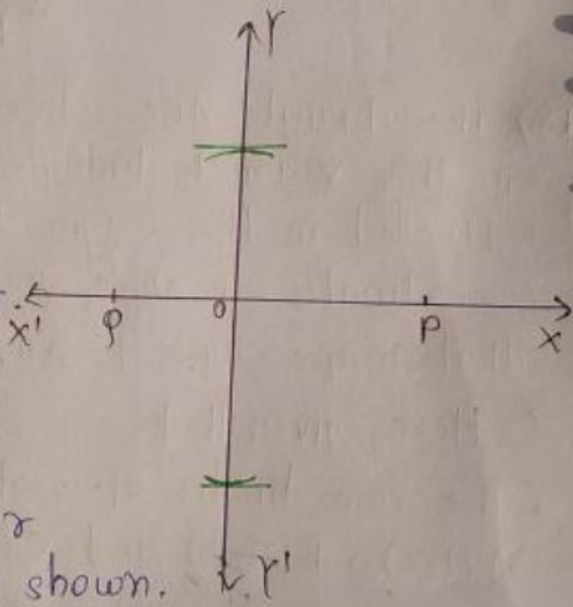 Y
X' Q O P X
r
shown. Y'